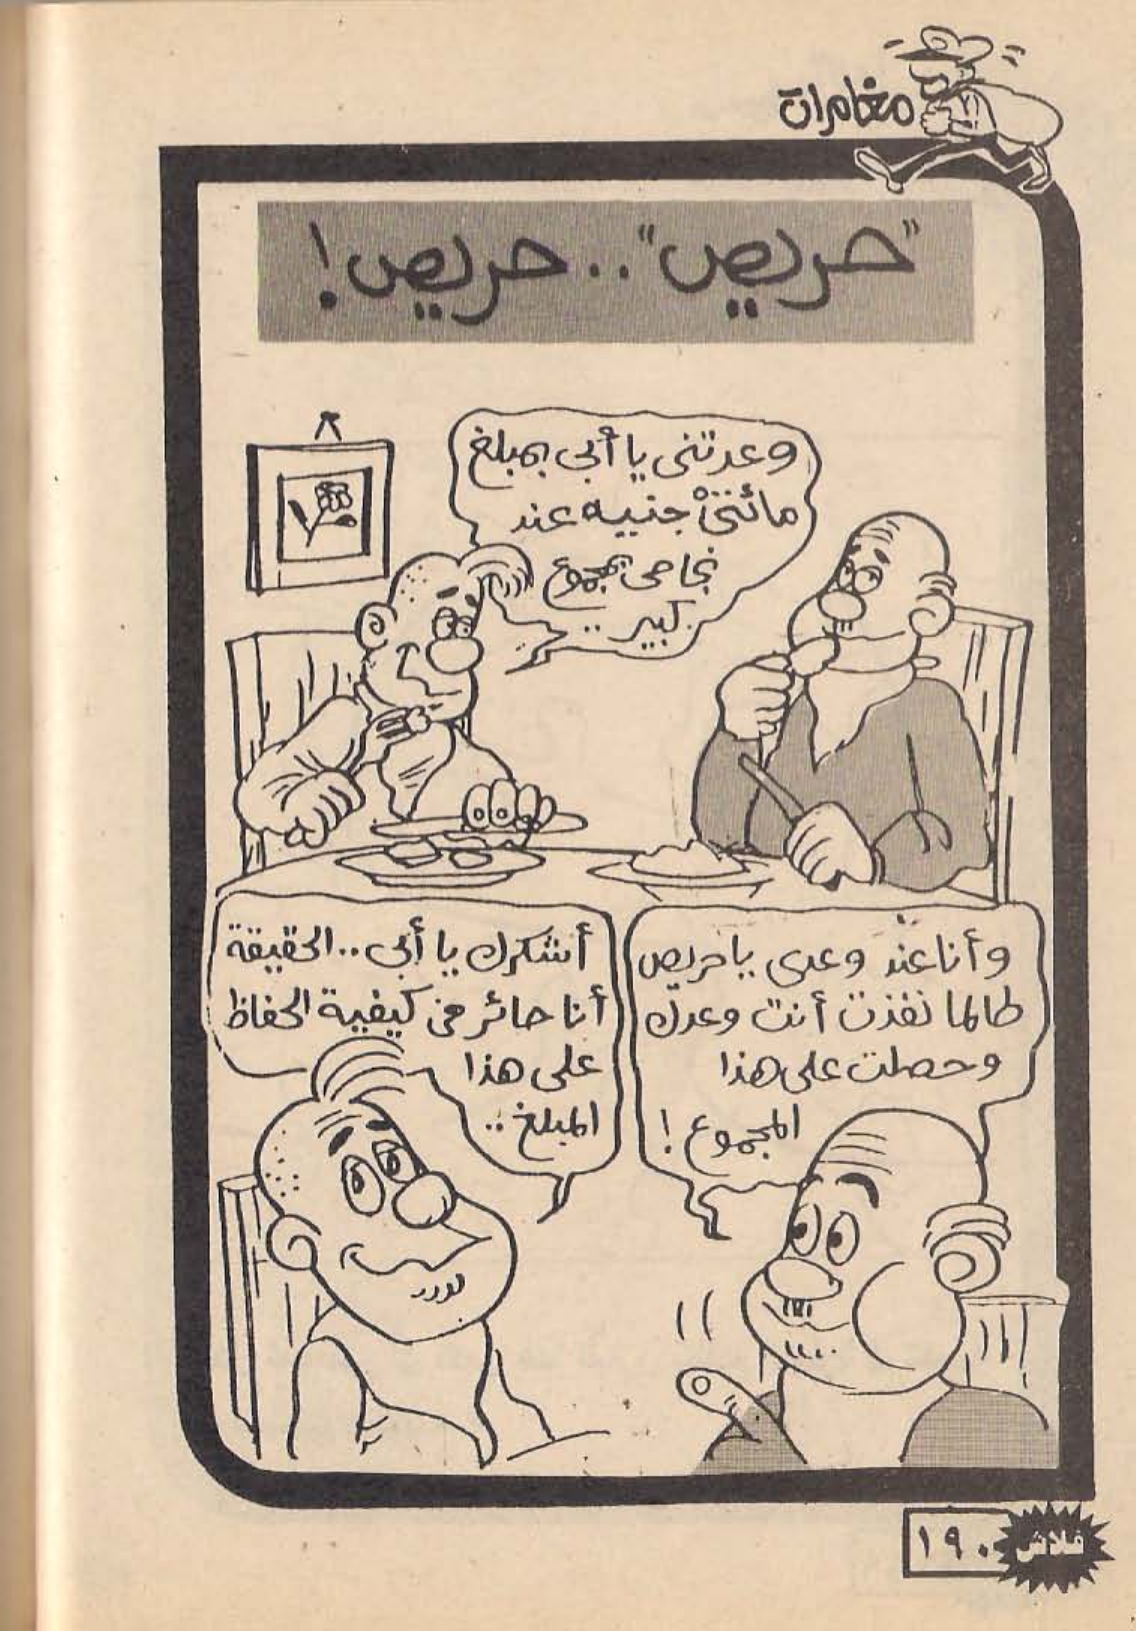 مغامرات
"حريص".. حريص!
وعدتنى يا أبى بمبلغ
مائتىْ جنيه عند
نجاحى بمجموع
كبير..
وأنا عند وعدى يا حريص
طالما نفذت أنت وعدك
وحصلت على هذا
المجموع!
أشكرك يا أبى.. الحقيقة
أنا حائر فى كيفية الحفاظ
على هذا
المبلغ..
١٩٠
فلاش